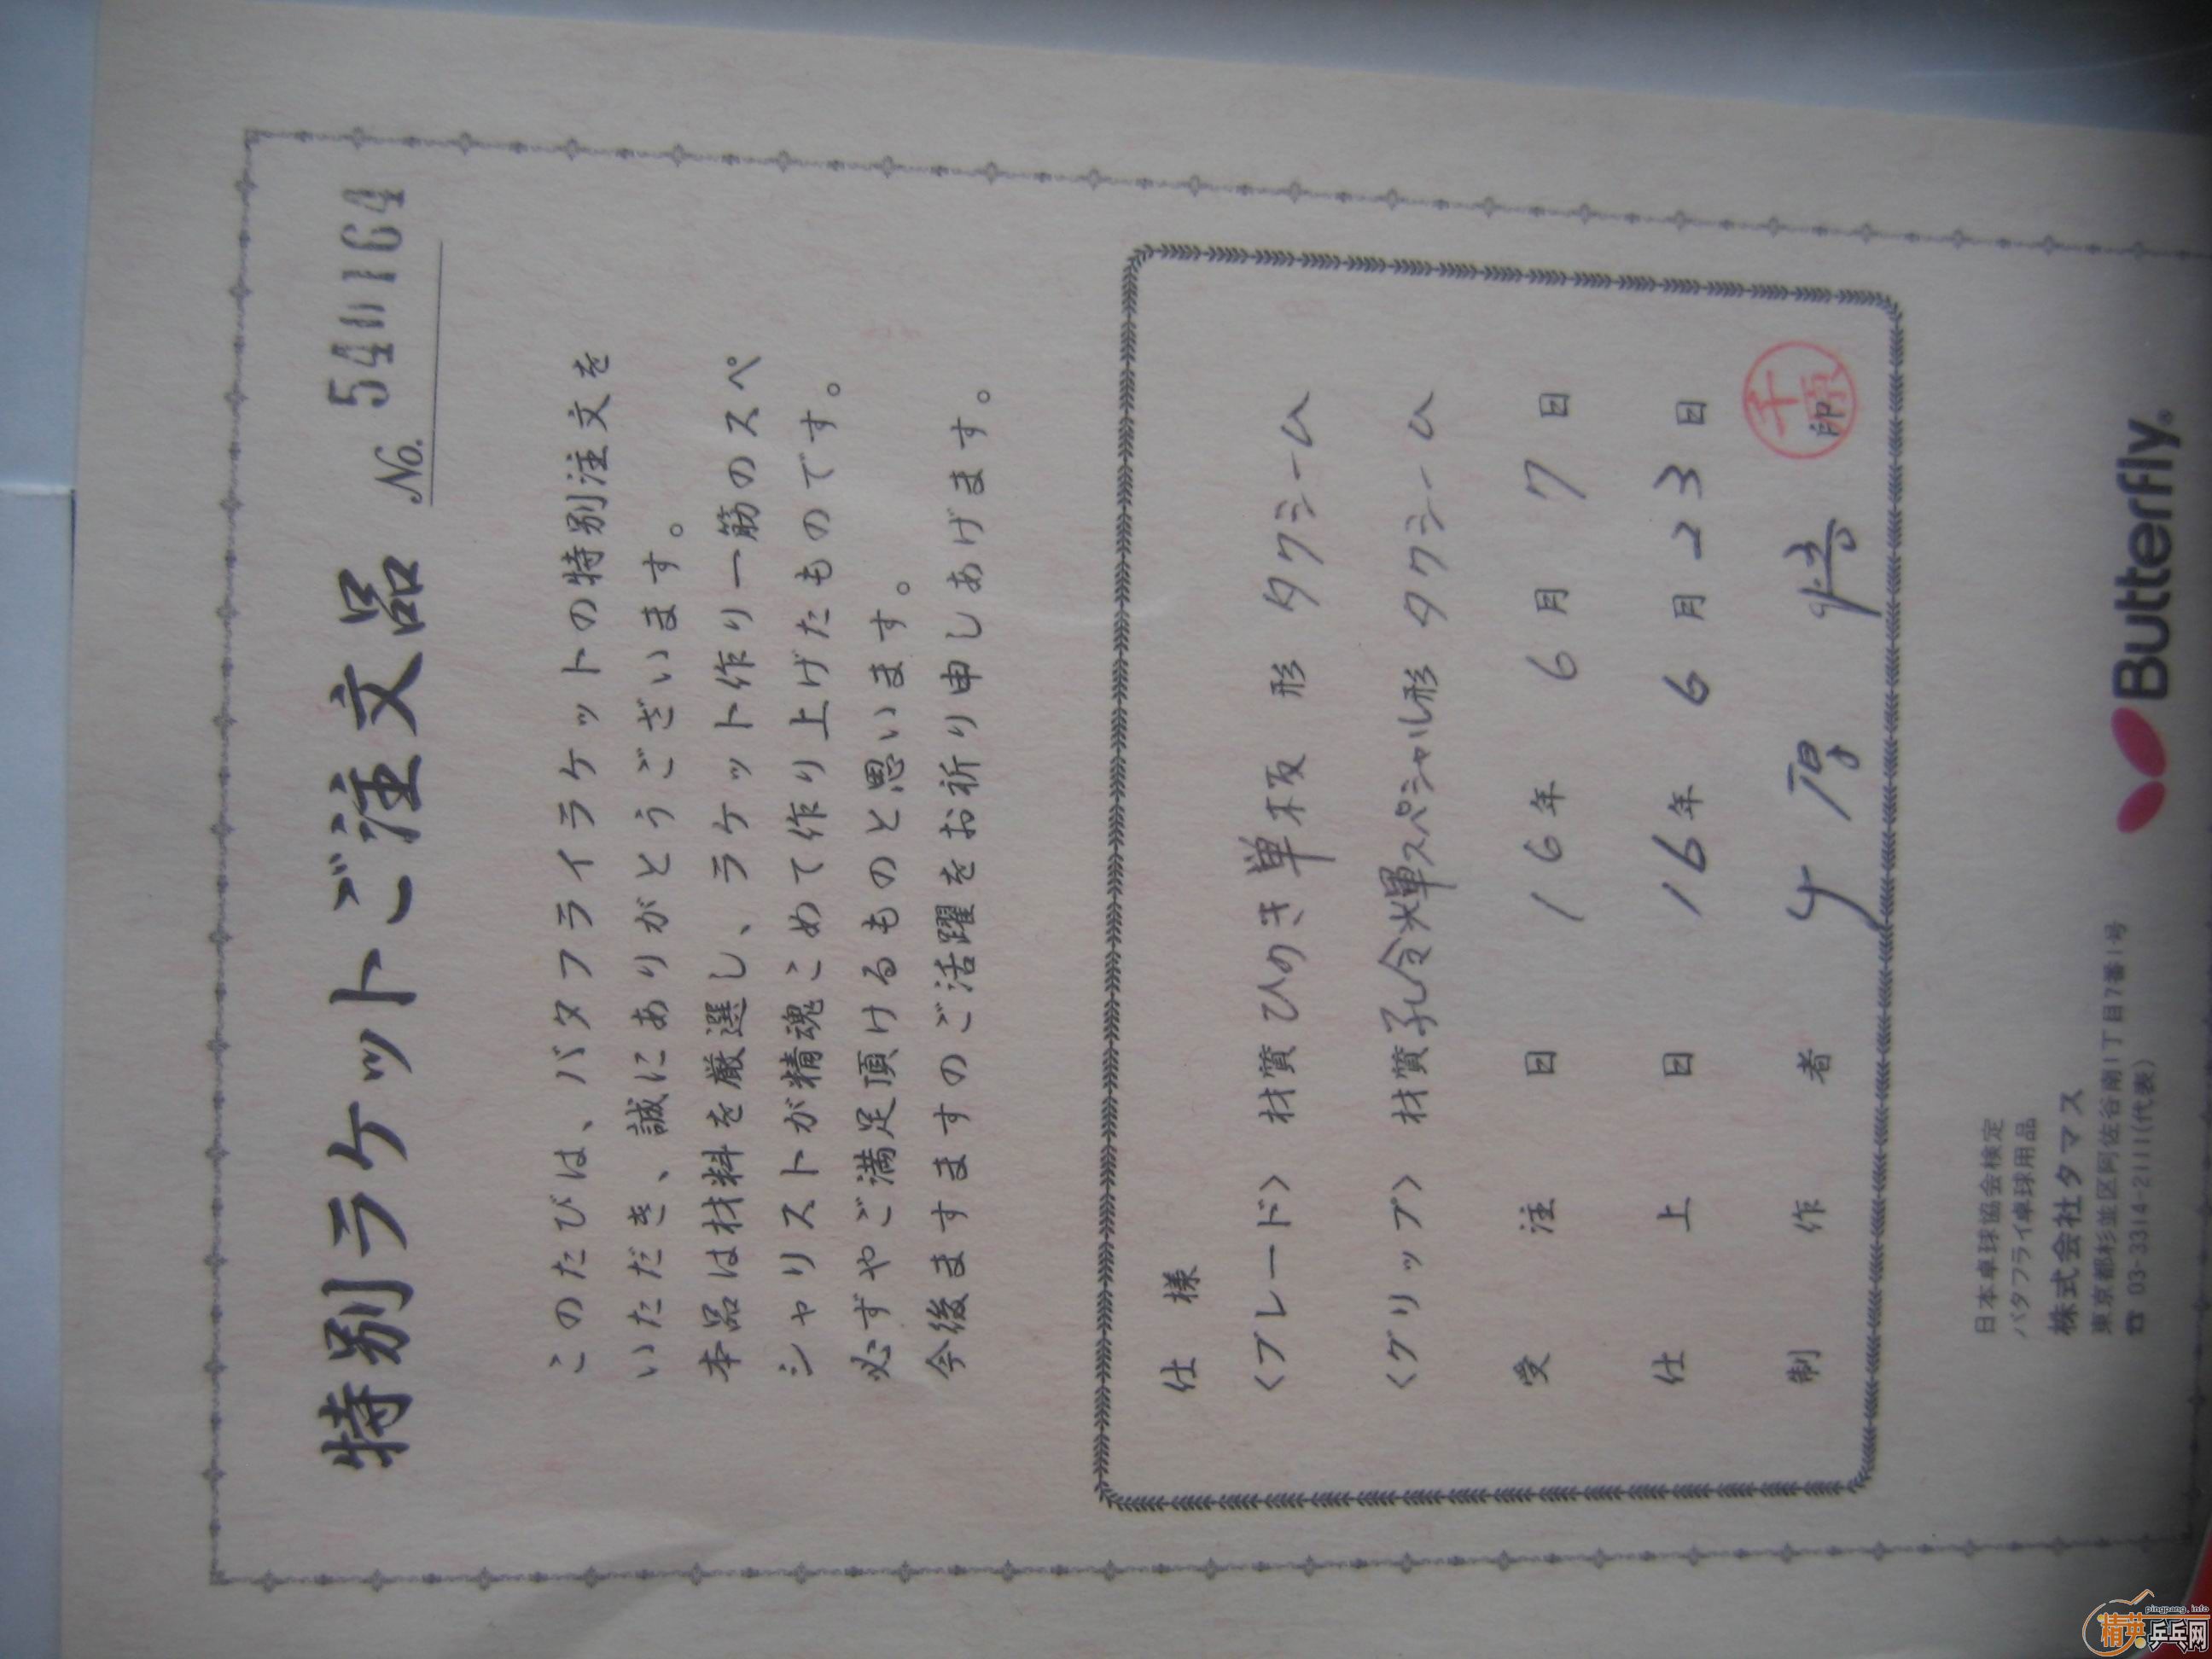 特別ラケットご注文品
No. 540164
このたびは、バタフライラケットの特別注文を
いただき、誠にありがとうございます。
本品は材料を厳選し、ラケット作り一筋のスペ
シャリストが精魂こめて作り上げたものです。
必ずやご満足頂けるものと思います。
今後ますますのご活躍をお祈り申しあげます。
仕様
〈ブレード〉 材質 ひのき単板 形 タクシーム
〈グリップ〉 材質 孔令輝スペシャル 形 タクシーム
受注日 16年6月7日
仕上日 16年6月23日
制作者 印
日本卓球協会検定
バタフライ卓球用品
株式会社タマス
東京都杉並区阿佐谷南1丁目7番1号
☎ 03-3314-2111(代表)
Butterfly®
pingpang.info
精英乒乓网